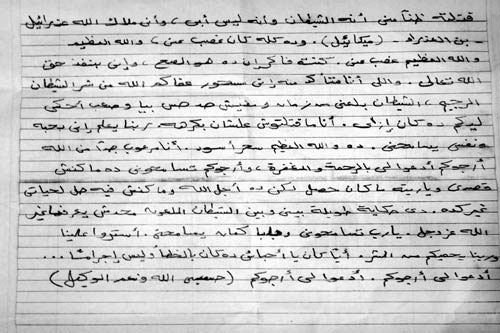 قتلته ظناً مني أنه الشيطان وأنه ليس أبي، وأن ملاك الله عزرائيل
بن العذراء (ميكائيل). وده كله كان غصب عني، والله العظيم
والله العظيم غصب عني. كنت فاكر إن ده هو الصح، وإني بنفذ حق
الله تعالى. واللي أنا متأكد منه إني مسحور عفاكم الله من شر الشيطان
الرجيم، الشيطان بلغني من زمان ومفيش حد حس بيا وصعب أحكي
ليكم ده كان إزاي. أنا ما قتلتوش علشان بكرهه ربنا يعلم إني بحبه
ونفسي يسامحني. ده والله العظيم سحر أسود. أنا مرعوب جداً من الله
أرجوكم أدعوا لي بالرحمة والمغفرة، وأرجوكم تسامحوني ده ما كنش
قصدي وياريته ما كان حصل لكن ده أجل الله وما كنش فيه حل لحياتي
غير كده. دي حكاية طويلة بيني وبين الشيطان الملعون محدش يعرفها غير
الله عز وجل. يارب تسامحوني وبابا كمان يسامحني. أستروا علينا
وربنا يحميكم من الشر. أياً كان يا أحبائي ده كان بالخطأ وليس إجراماً...
أدعوا لي أرجوكم. أدعوا لي أرجوكم (حسبي الله ونعم الوكيل)